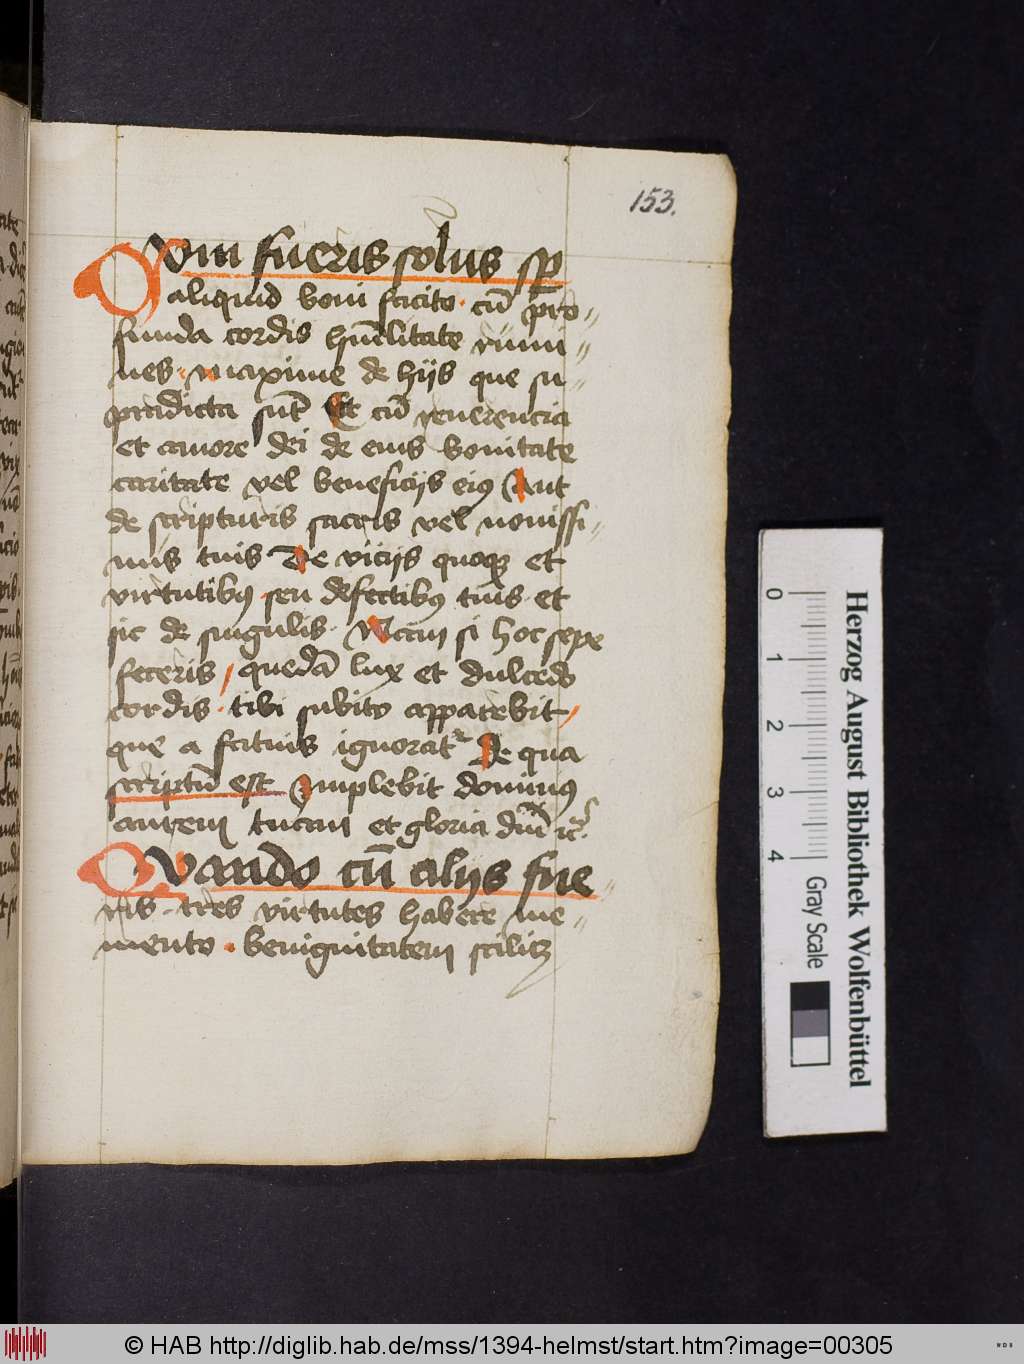 153.
Dum fueris solus sp̄
aliquid boni facito · cū pro-
funda cordis hūilitate rumi-
nes · maxime de hijs que su-
pradicta sūt Et cū reuerencia
et amore dei de eius bonitate
caritate vel beneficijs eiꝰ Aut
de scripturis sacris vel nouissi-
mis tuis De vicijs quoqꝫ et
virtutibꝰ seu defectibꝰ tuis · et
sic de singulis · Nam si hoc sepe
feceris / quedā lux et dulcedo
cordis · tibi subito apparebit /
que a fatuis ignorat᷑ De qua
scriptū est Implebit dominus
autem tuam et gloria dn̄i ⁊c̄
Quando cū alijs fue-
ris · tres virtutes habere me-
mento · benignitatem scilicꝫ
Herzog August Bibliothek Wolfenbüttel
0 1 2 3 4 Gray Scale
© HAB http://diglib.hab.de/mss/1394-helmst/start.htm?image=00305